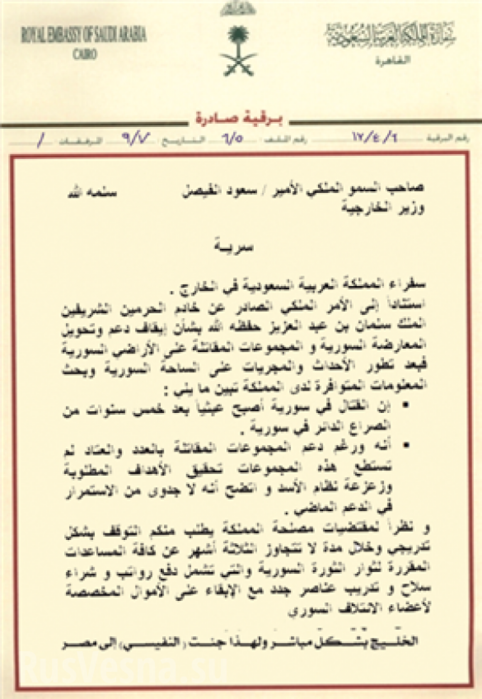 ROYAL EMBASSY OF SAUDI ARABIA
CAIRO
سفارة المملكة العربية السعودية
القاهرة
برقية صادرة
رقم البرقية ١٧/٤/٦ رقم الملف ٦/٥ التاريخ ٩/٧ المرفقات /
صاحب السمو الملكي الأمير / سعود الفيصل سلمه الله
وزير الخارجية
سرية
سفراء المملكة العربية السعودية في الخارج .
استناداً إلى الأمر الملكي الصادر عن خادم الحرمين الشريفين
الملك سلمان بن عبد العزيز حفظه الله بشأن إيقاف دعم وتحويل
المعارضة السورية و المجموعات المقاتلة على الأراضي السورية
فبعد تطور الأحداث والمجريات على الساحة السورية وبحث
المعلومات المتوافرة لدى المملكة تبين ما يلي :
▪ إن القتال في سورية أصبح عبثياً بعد خمس سنوات من
الصراع الدائر في سورية .
▪ أنه ورغم دعم المجموعات المقاتلة بالعدد والعتاد لم
تستطع هذه المجموعات تحقيق الأهداف المطلوبة
وزعزعة نظام الأسد و اتضح أنه لا جدوى من الاستمرار
في الدعم الماضي .
و نظراً لمقتضيات مصلحة المملكة يطلب منكم التوقف بشكل
تدريجي وخلال مدة لا تتجاوز الثلاثة أشهر عن كافة المساعدات
المقررة لثوار الثورة السورية والتي تشمل دفع رواتب و شراء
سلاح و تدريب عناصر جدد مع الإبقاء على الأموال المخصصة
لأعضاء الائتلاف السوري
الخليج بشكل مباشر ولهذا جئت (النفيسي) إلى مصر
RusVesna.su